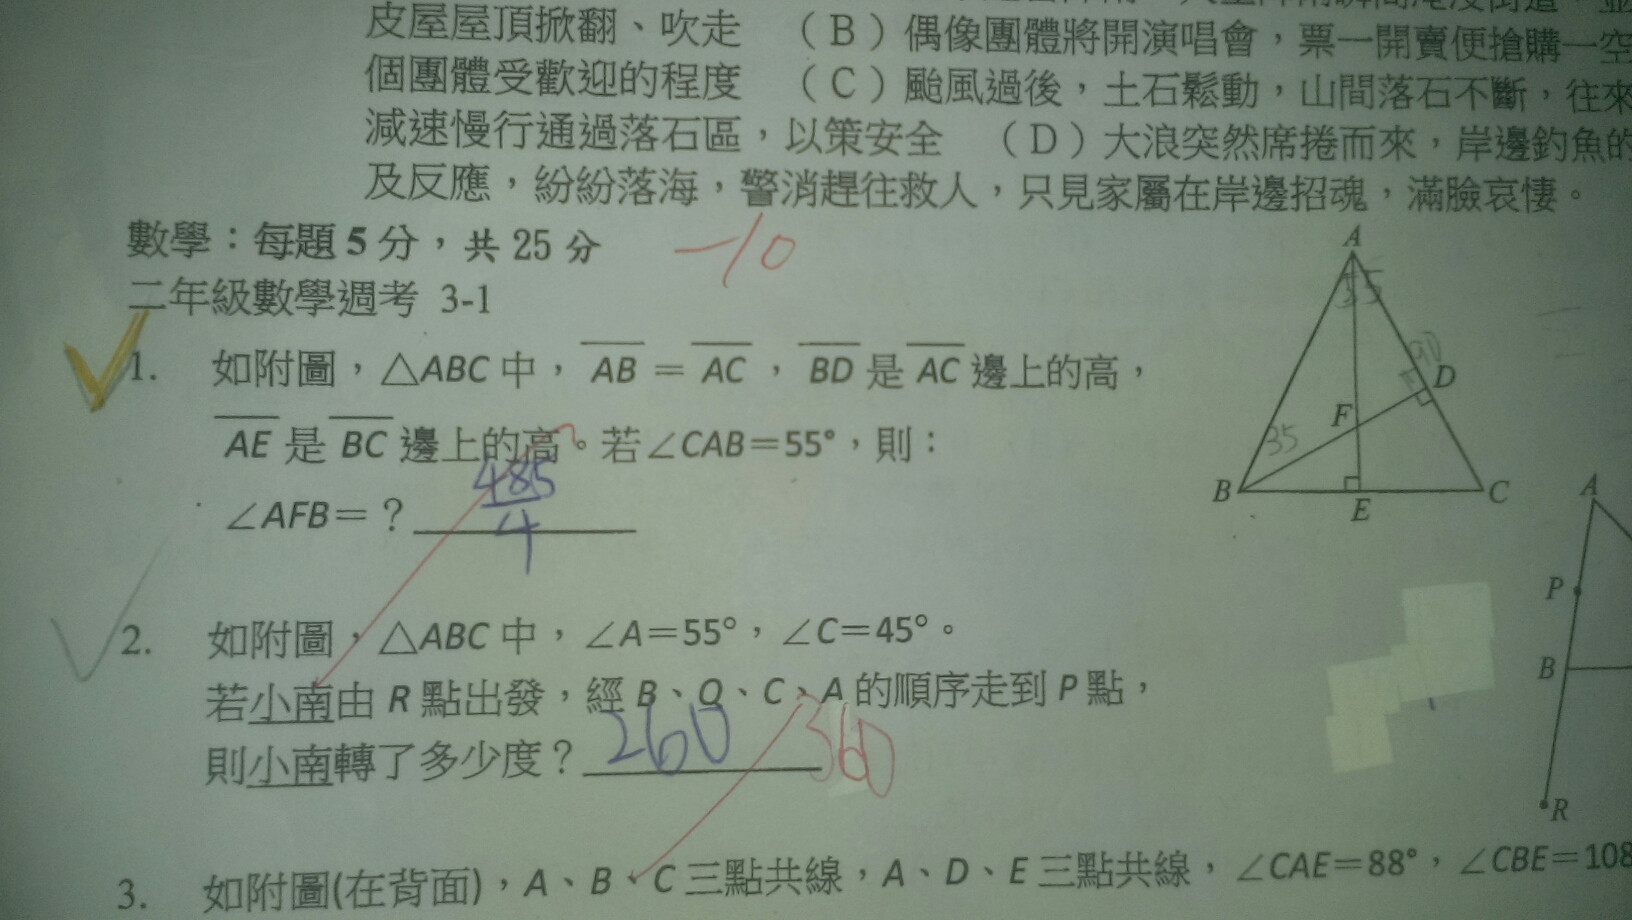 皮屋屋頂掀翻、吹走 （B）偶像團體將開演唱會，票一開賣便搶購一空
個團體受歡迎的程度 （C）颱風過後，土石鬆動，山間落石不斷，往來
減速慢行通過落石區，以策安全 （D）大浪突然席捲而來，岸邊釣魚的
及反應，紛紛落海，警消趕往救人，只見家屬在岸邊招魂，滿臉哀悽。
數學：每題5分，共25分 -10
二年級數學週考 3-1
1. 如附圖，△ABC中，AB = AC，BD是AC邊上的高，
AE是BC邊上的高。若∠CAB=55°，則：
∠AFB=？ 485/4
A
55
90
D
F
35
B
E
C
2. 如附圖，△ABC中，∠A=55°，∠C=45°。
若小南由R點出發，經B、Q、C、A的順序走到P點，
則小南轉了多少度？ 260 360
A
P
B
R
3. 如附圖(在背面)，A、B、C三點共線，A、D、E三點共線，∠CAE=88°，∠CBE=108